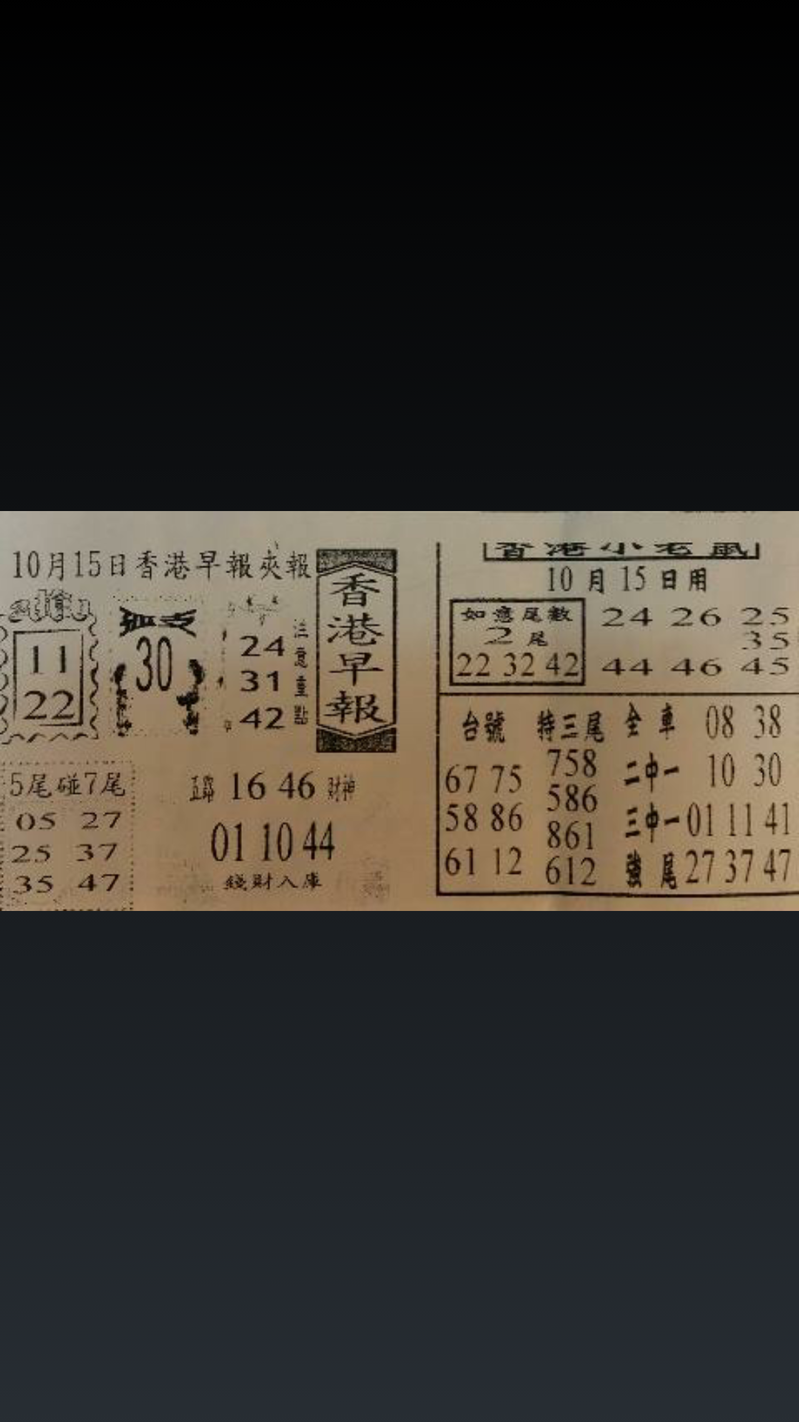 10月15日香港早報夾報
香港早報
11
22
孤支
30
24
31
42
注意重點
5尾碰7尾
05 27
25 37
35 47
16 46 財神
01 10 44
錢財入庫
香港小老鼠
10月15日用
如意尾數
2尾
22 32 42
24 26 25
35
44 46 45
台號 特三尾 全車 08 38
67 75 758 二中一 10 30
58 86 586 三中一 01 11 41
61 12 861 強尾 27 37 47
612